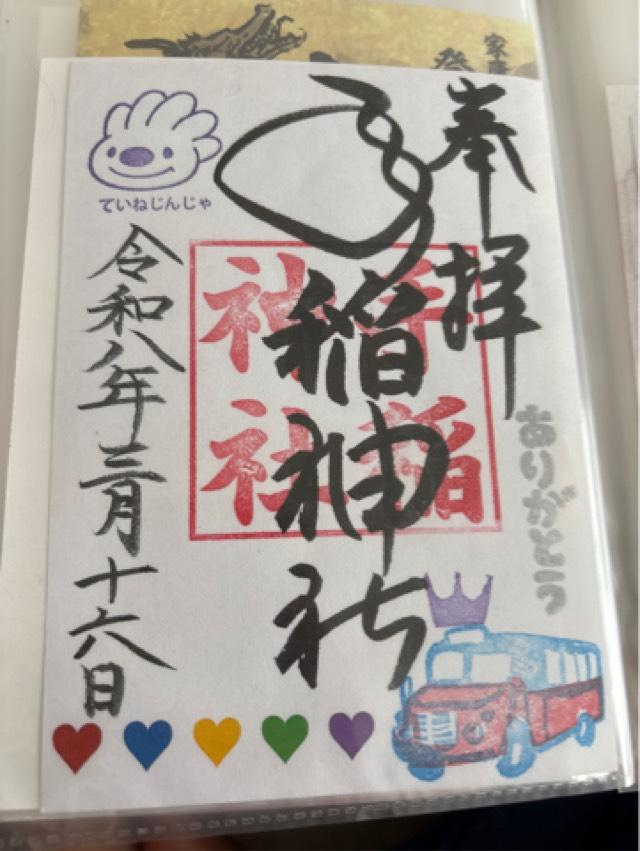 奉拝
ありがとう
手稲神社
手稲
神社
ていねじんじゃ
令和八年三月十六日